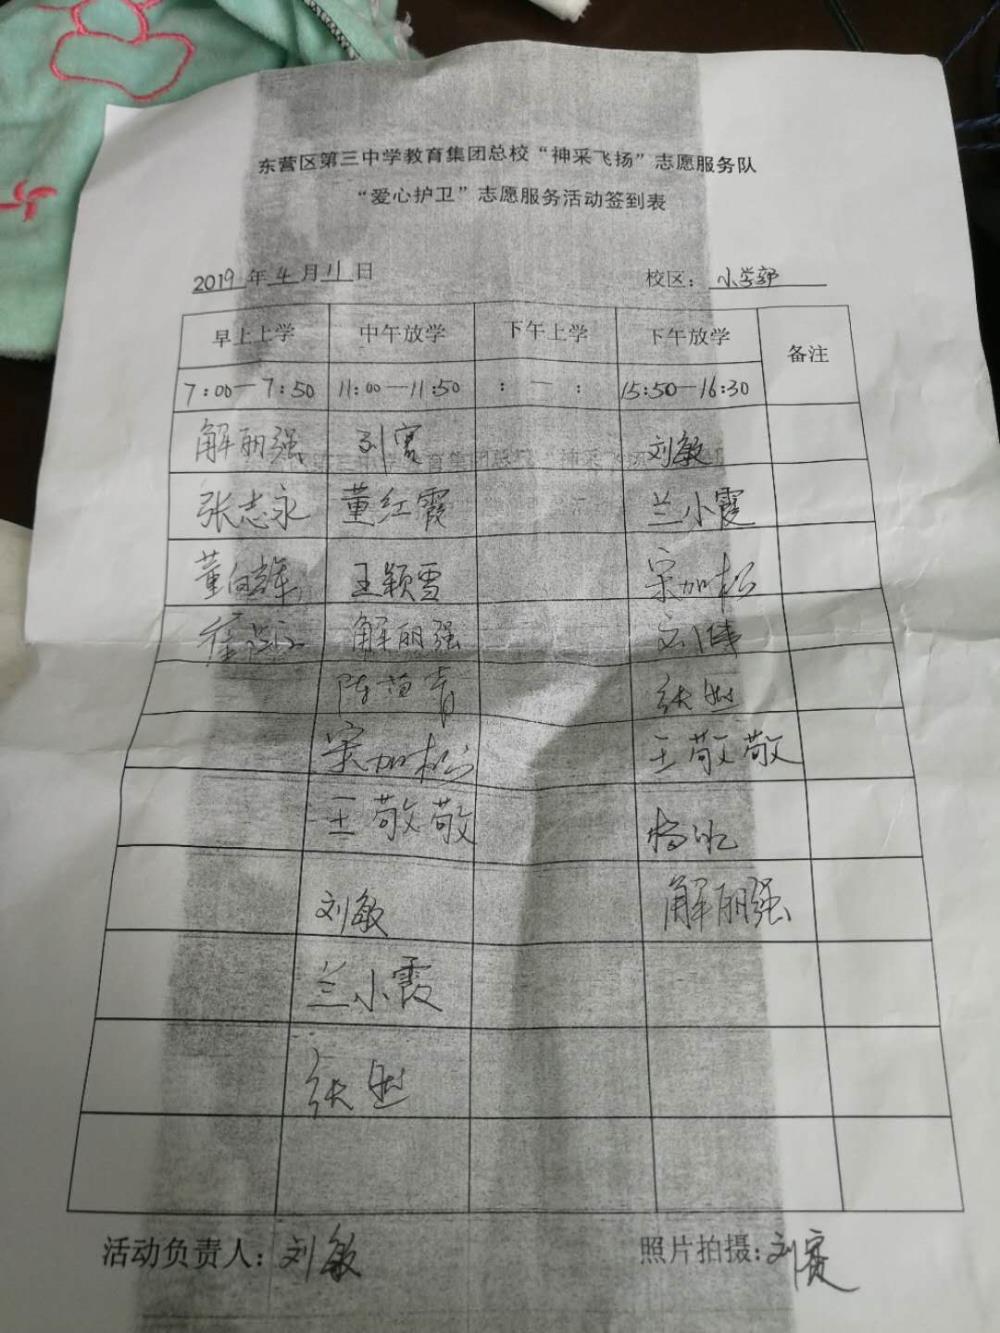 东营区第三中学教育集团总校“神采飞扬”志愿服务队
“爱心护卫”志愿服务活动签到表
2019 年 4 月 11 日 校区： 小学部
早上上学 中午放学 下午上学 下午放学 备注
7:00—7:50 11:00—11:50 : — : 15:50—16:30
解丽强 刘赛 刘敏
张志永 董红霞 兰小霞
董向雄 王颖雪 宋加松
解丽强 刘伟
陈范青 张
宋加松 王敬敬
王敬敬 杨
刘敏 解丽强
兰小霞
张
活动负责人：刘敏 照片拍摄：刘赛